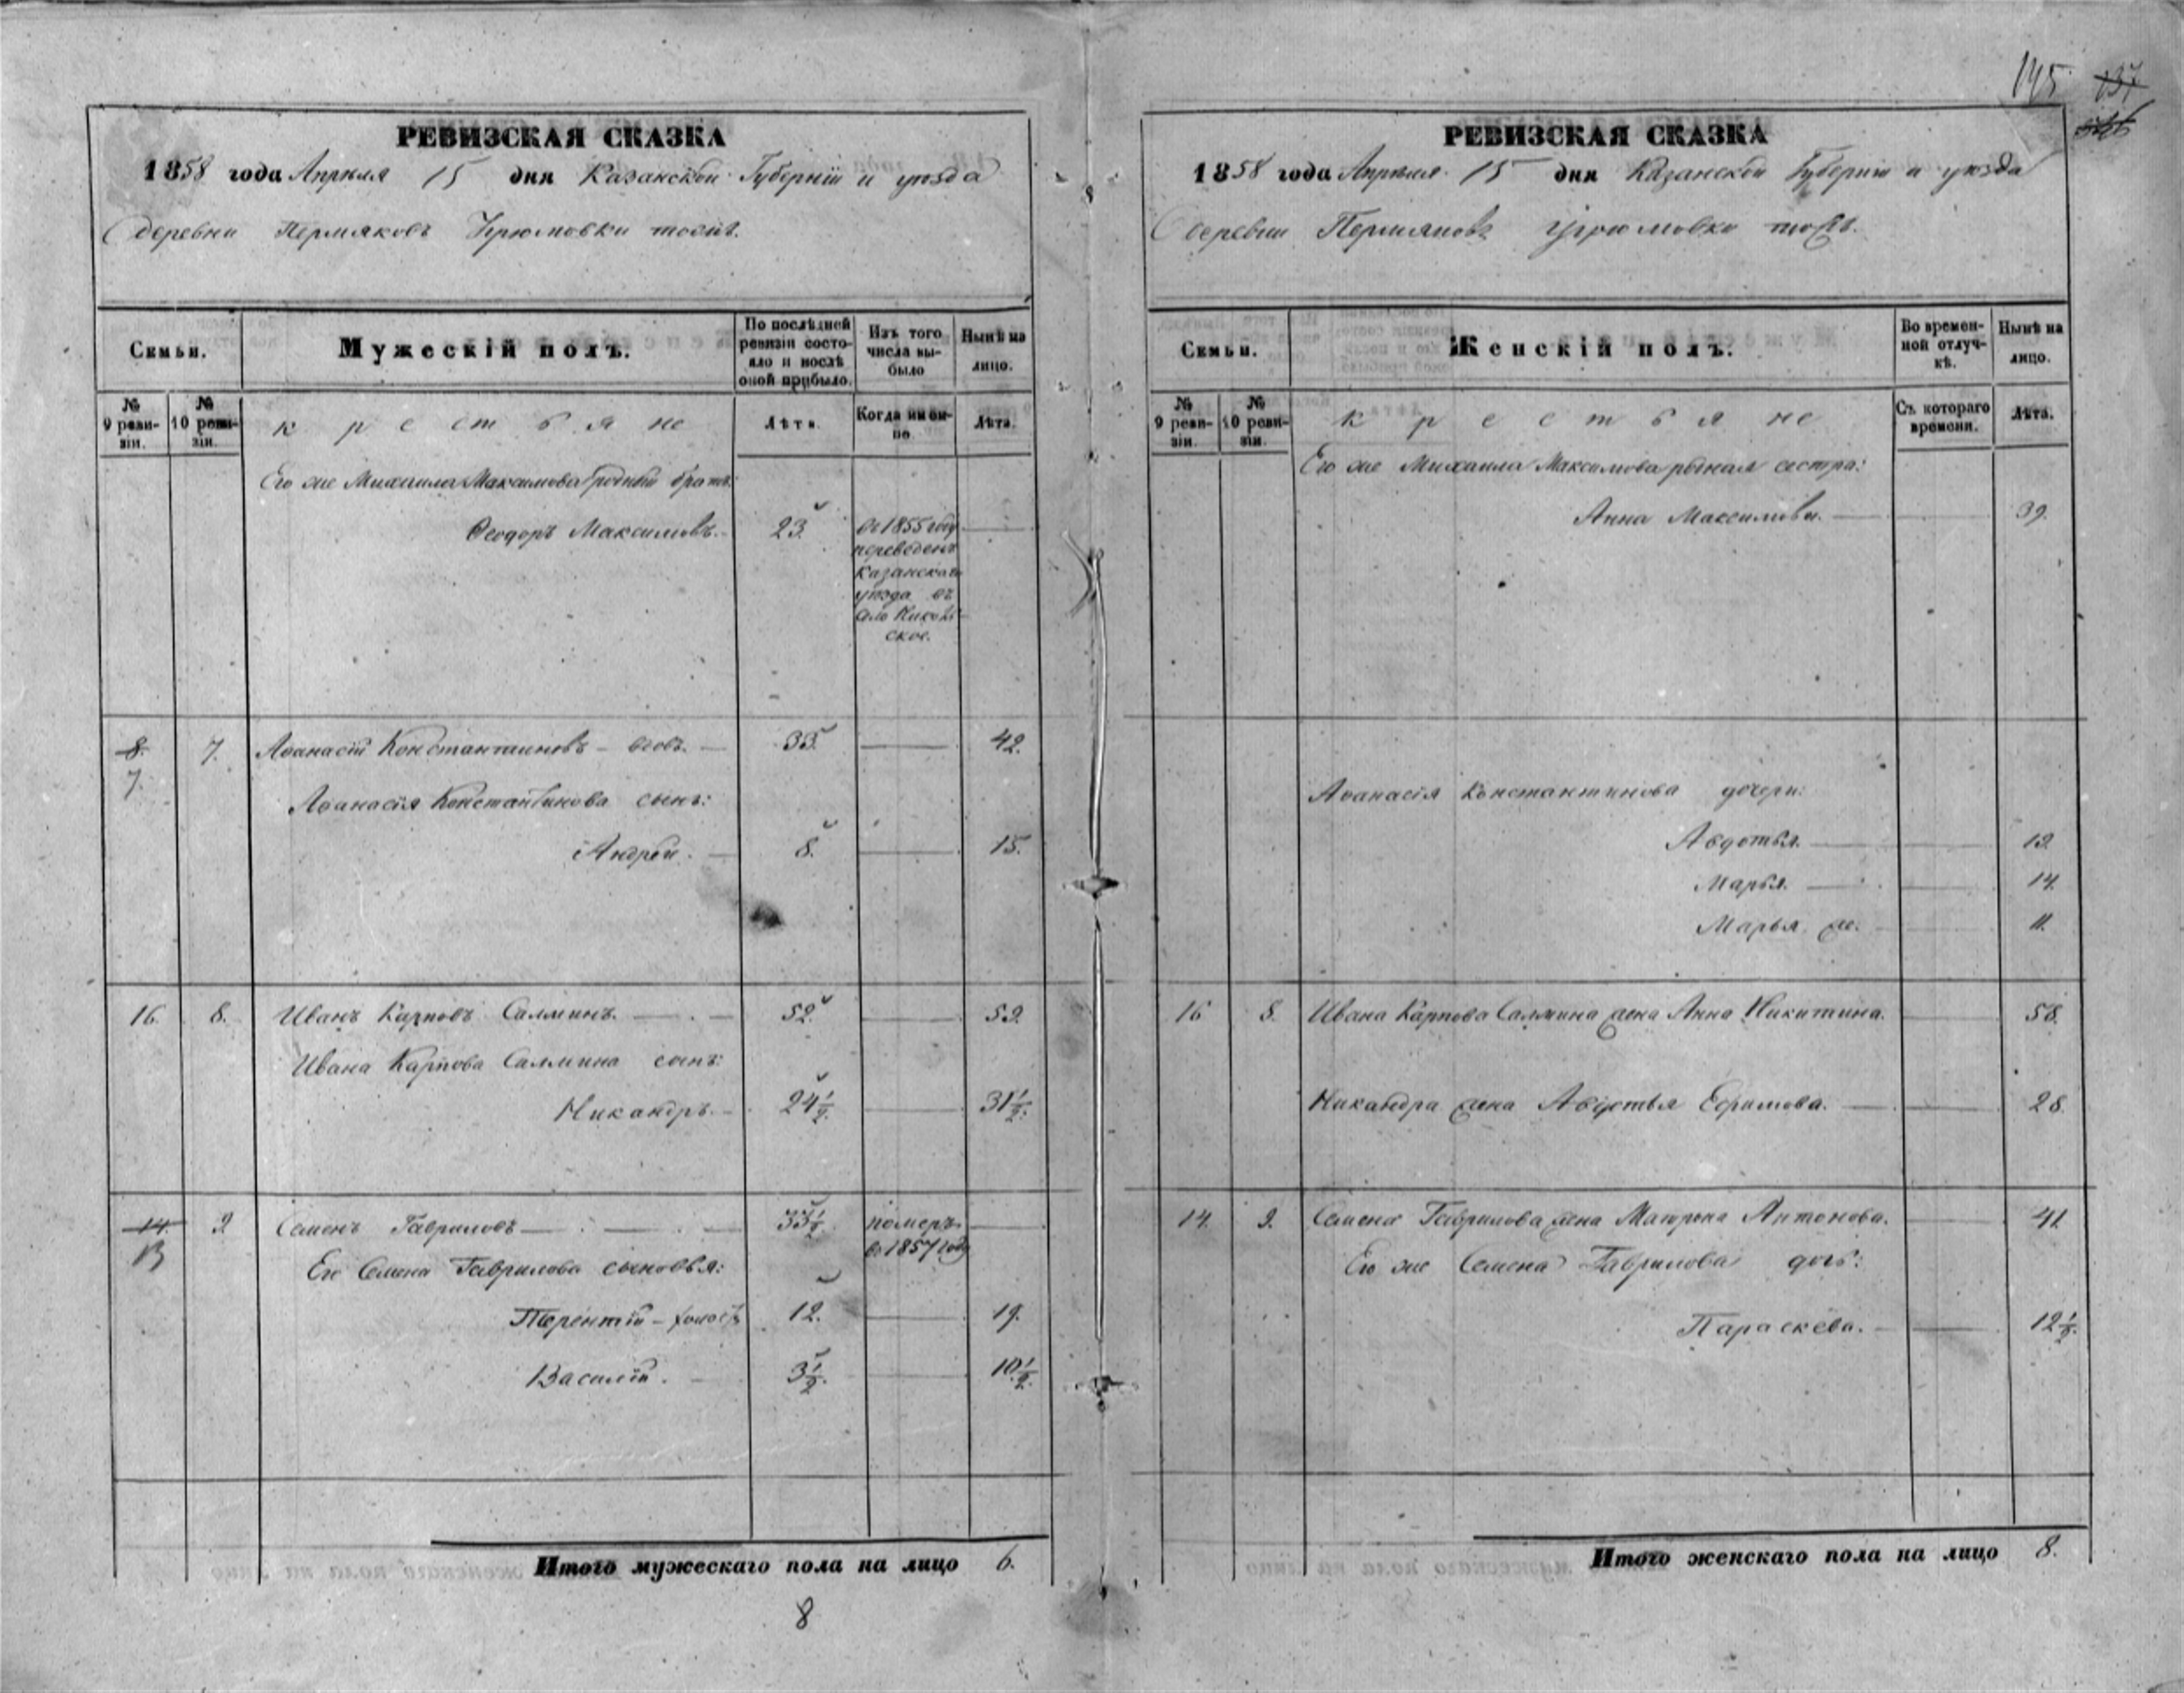 145 137
РЕВИЗСКАЯ СКАЗКА
1858 года Апрѣля 15 дня Казанской Губерніи и уѣзда
деревни Пермяковъ Угрюмовки тожъ.
Семьи.
Мужескій полъ.
По послѣдней ревизіи состояло и послѣ оной прибыло.
Изъ того числа выбыло
Нынѣ на лицо.
№ 9 реви-зіи.
№ 10 реви-зіи.
крестьяне
Лѣта.
Когда именно.
Лѣта.
Его же Михаила Максимова родный братъ
Ѳеодоръ Максимовъ. 23. въ 1855 году
переведенъ
Казанскаго
уѣзда въ
село Николь-
ское.
8. 7. Аѳанасій Константиновъ – вдовъ. – 35. — 42.
7.
Аѳанасія Константинова сынъ:
Андрей. – 8. — 15.
16. 8. Иванъ Карповъ Саляминъ. — 52. — 59.
Ивана Карпова Салямина сынъ:
Никандръ. – 24½. — 31½.
14. 9 Семенъ Гавриловъ — 33½. померъ —
13 въ 1857 году
Его Семена Гаврилова сыновья:
Терентій – холостъ 12. — 19.
Василій. – 3½. — 10½.
Итого мужескаго пола на лицо 6.
8
РЕВИЗСКАЯ СКАЗКА
1858 года Апрѣля 15 дня Казанской Губерніи и уѣзда
деревни Пермяковъ Угрюмовки тожъ.
Семьи.
Женскій полъ.
Во времен-ной отлуч-кѣ.
Нынѣ на лицо.
№ 9 реви-зіи.
№ 10 реви-зіи.
крестьяне
Съ котораго времени.
Лѣта.
Его же Михаила Максимова родная сестра:
Анна Максимова. — 39.
Аѳанасія Константинова дочери:
Авдотья. — 19.
Марья. — 14.
Марья же. — 11.
16 8. Ивана Карпова Салямина жена Анна Никитина. — 58.
Никандра жена Авдотья Ефимова. — 28.
14. 9. Семена Гаврилова жена Матрена Антонова. — 41.
Его же Семена Гаврилова дочь:
Параскева. — 12½.
Итого женскаго пола на лицо 8.